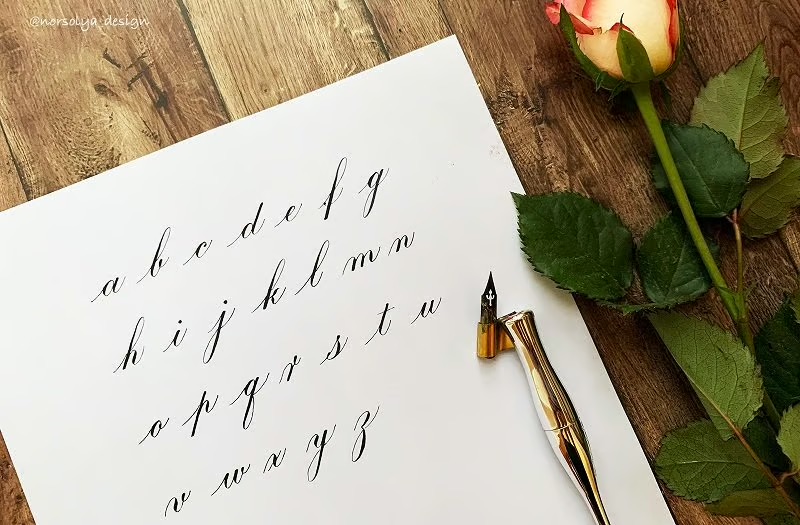 @norsolya_design
a b c d e f g
h i j k l m n
o p q r s t u
v w x y z